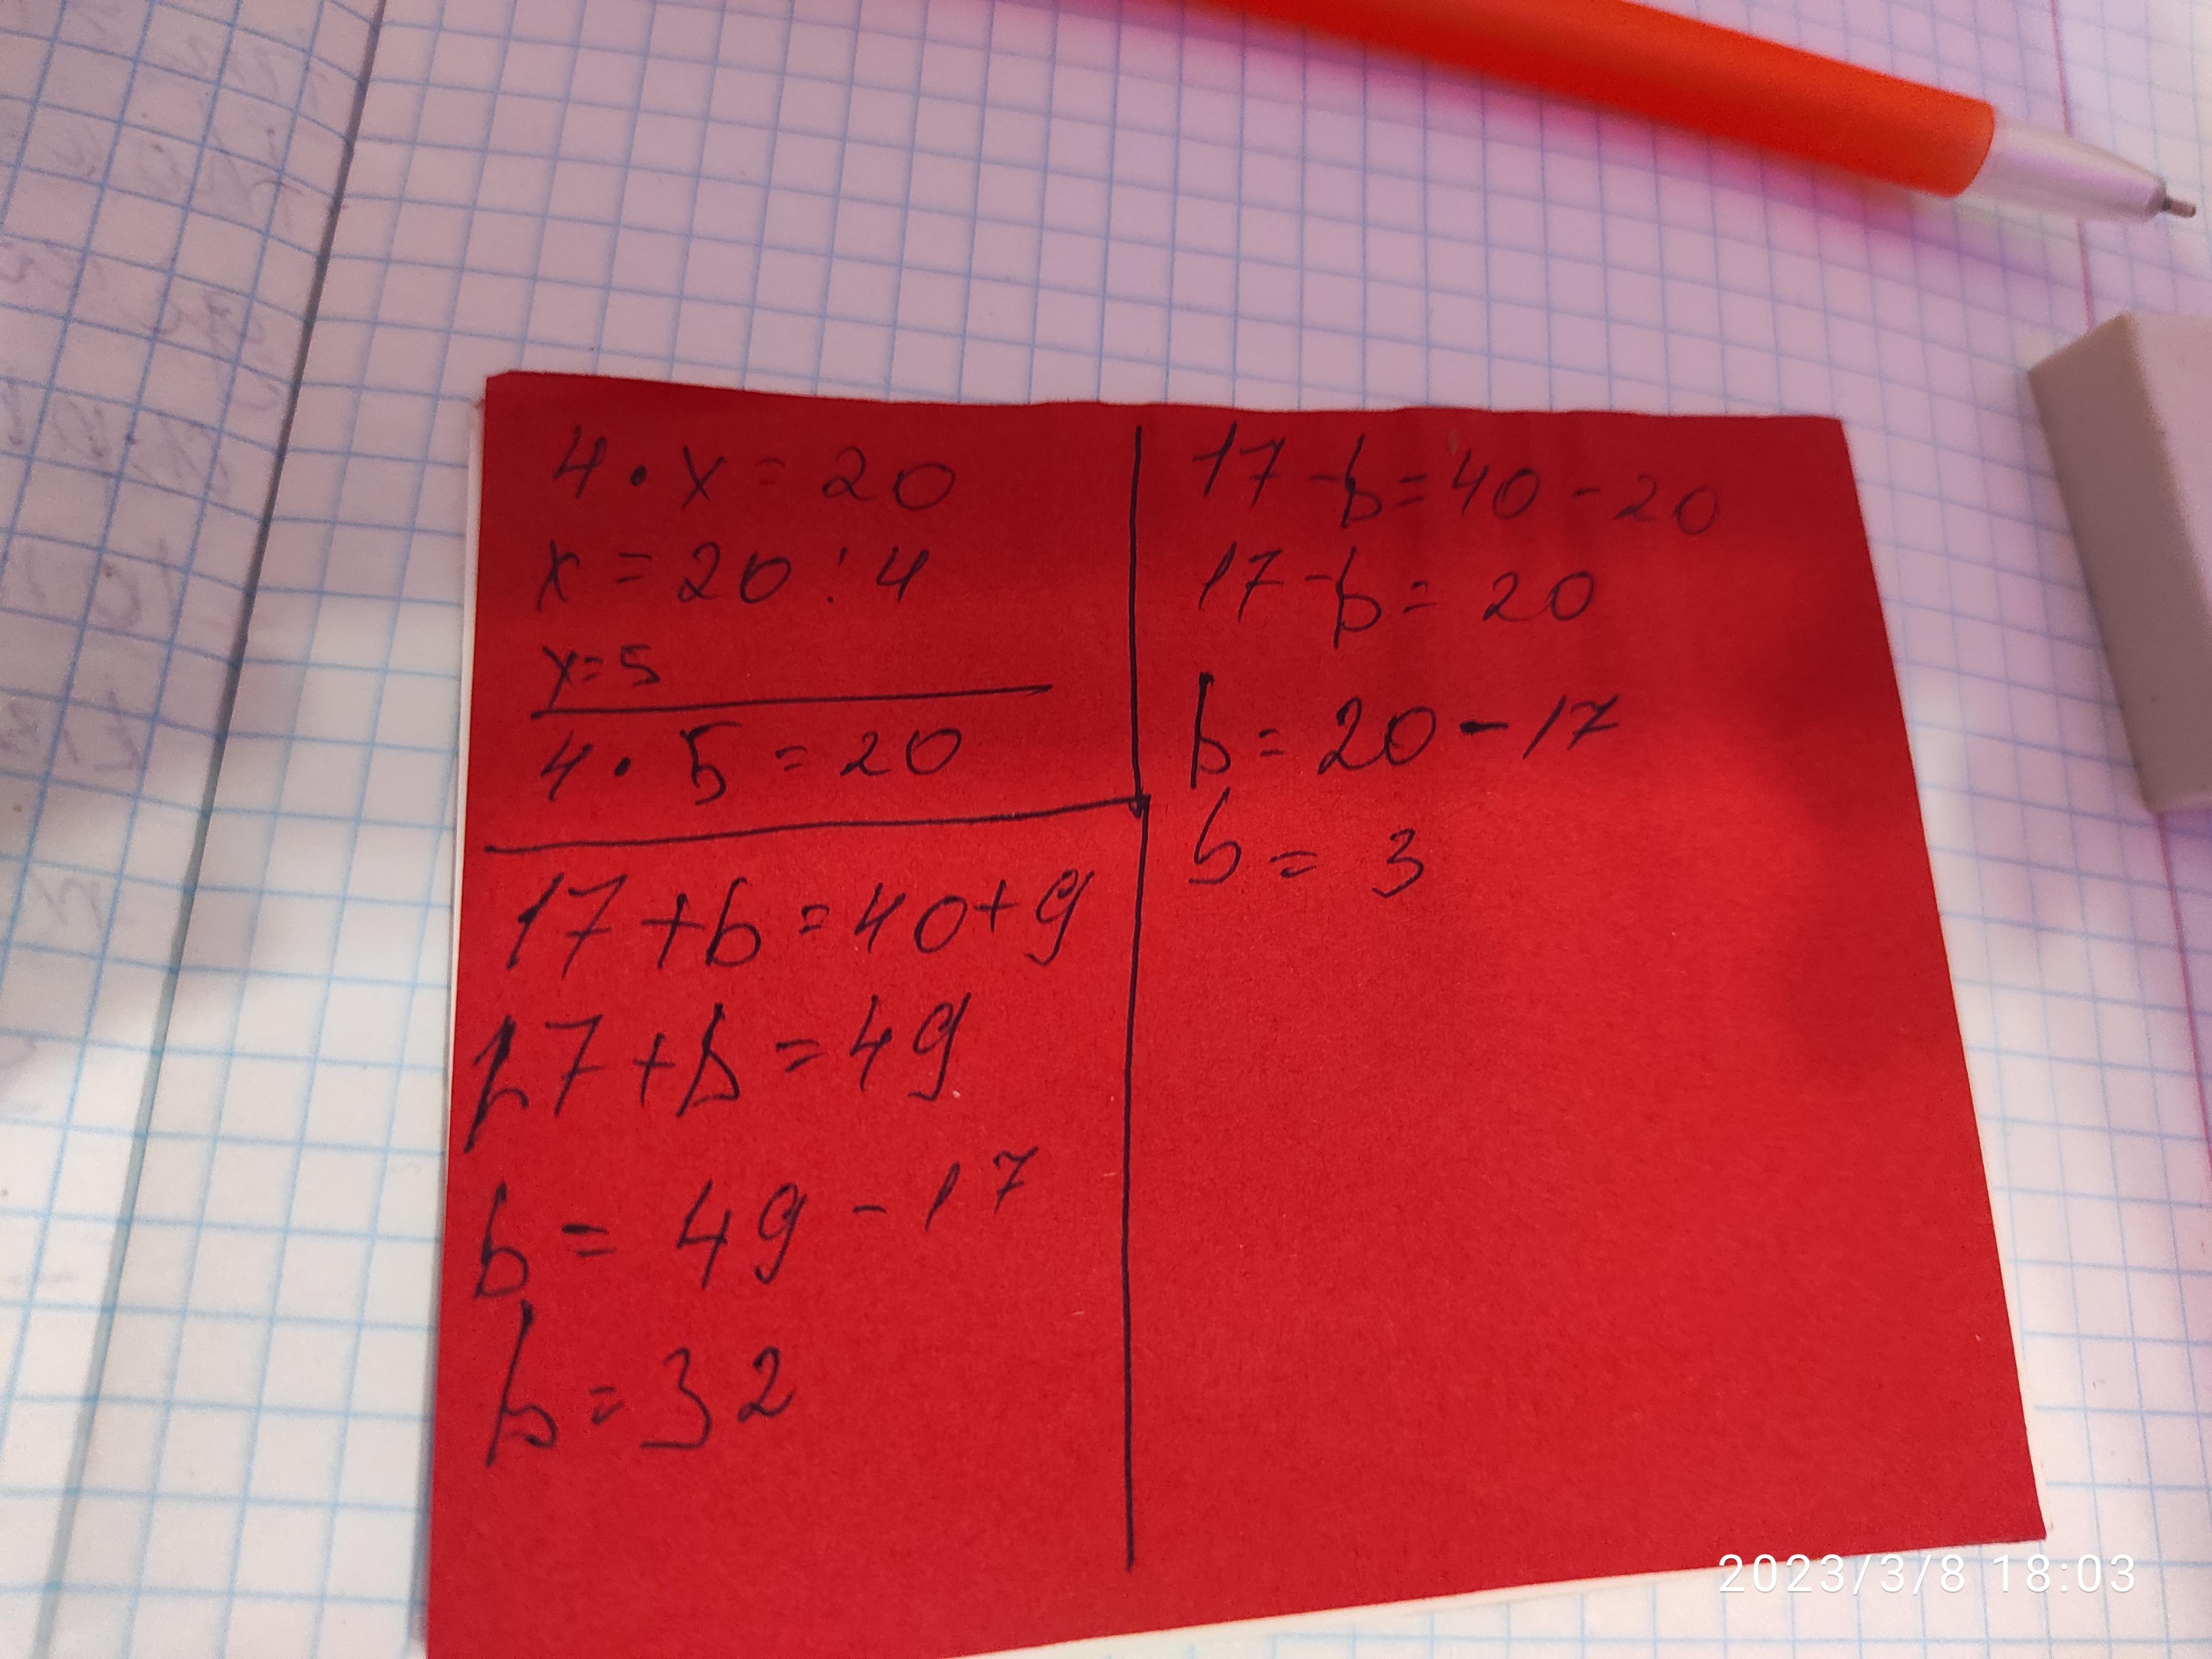 4 · x = 20
x = 20 : 4
x = 5
4 · 5 = 20
17 + b = 40 + 9
17 + b = 49
b = 49 - 17
b = 32
17 - b = 40 - 20
17 - b = 20
b = 20 - 17
b = 3
2023/3/8 18:03